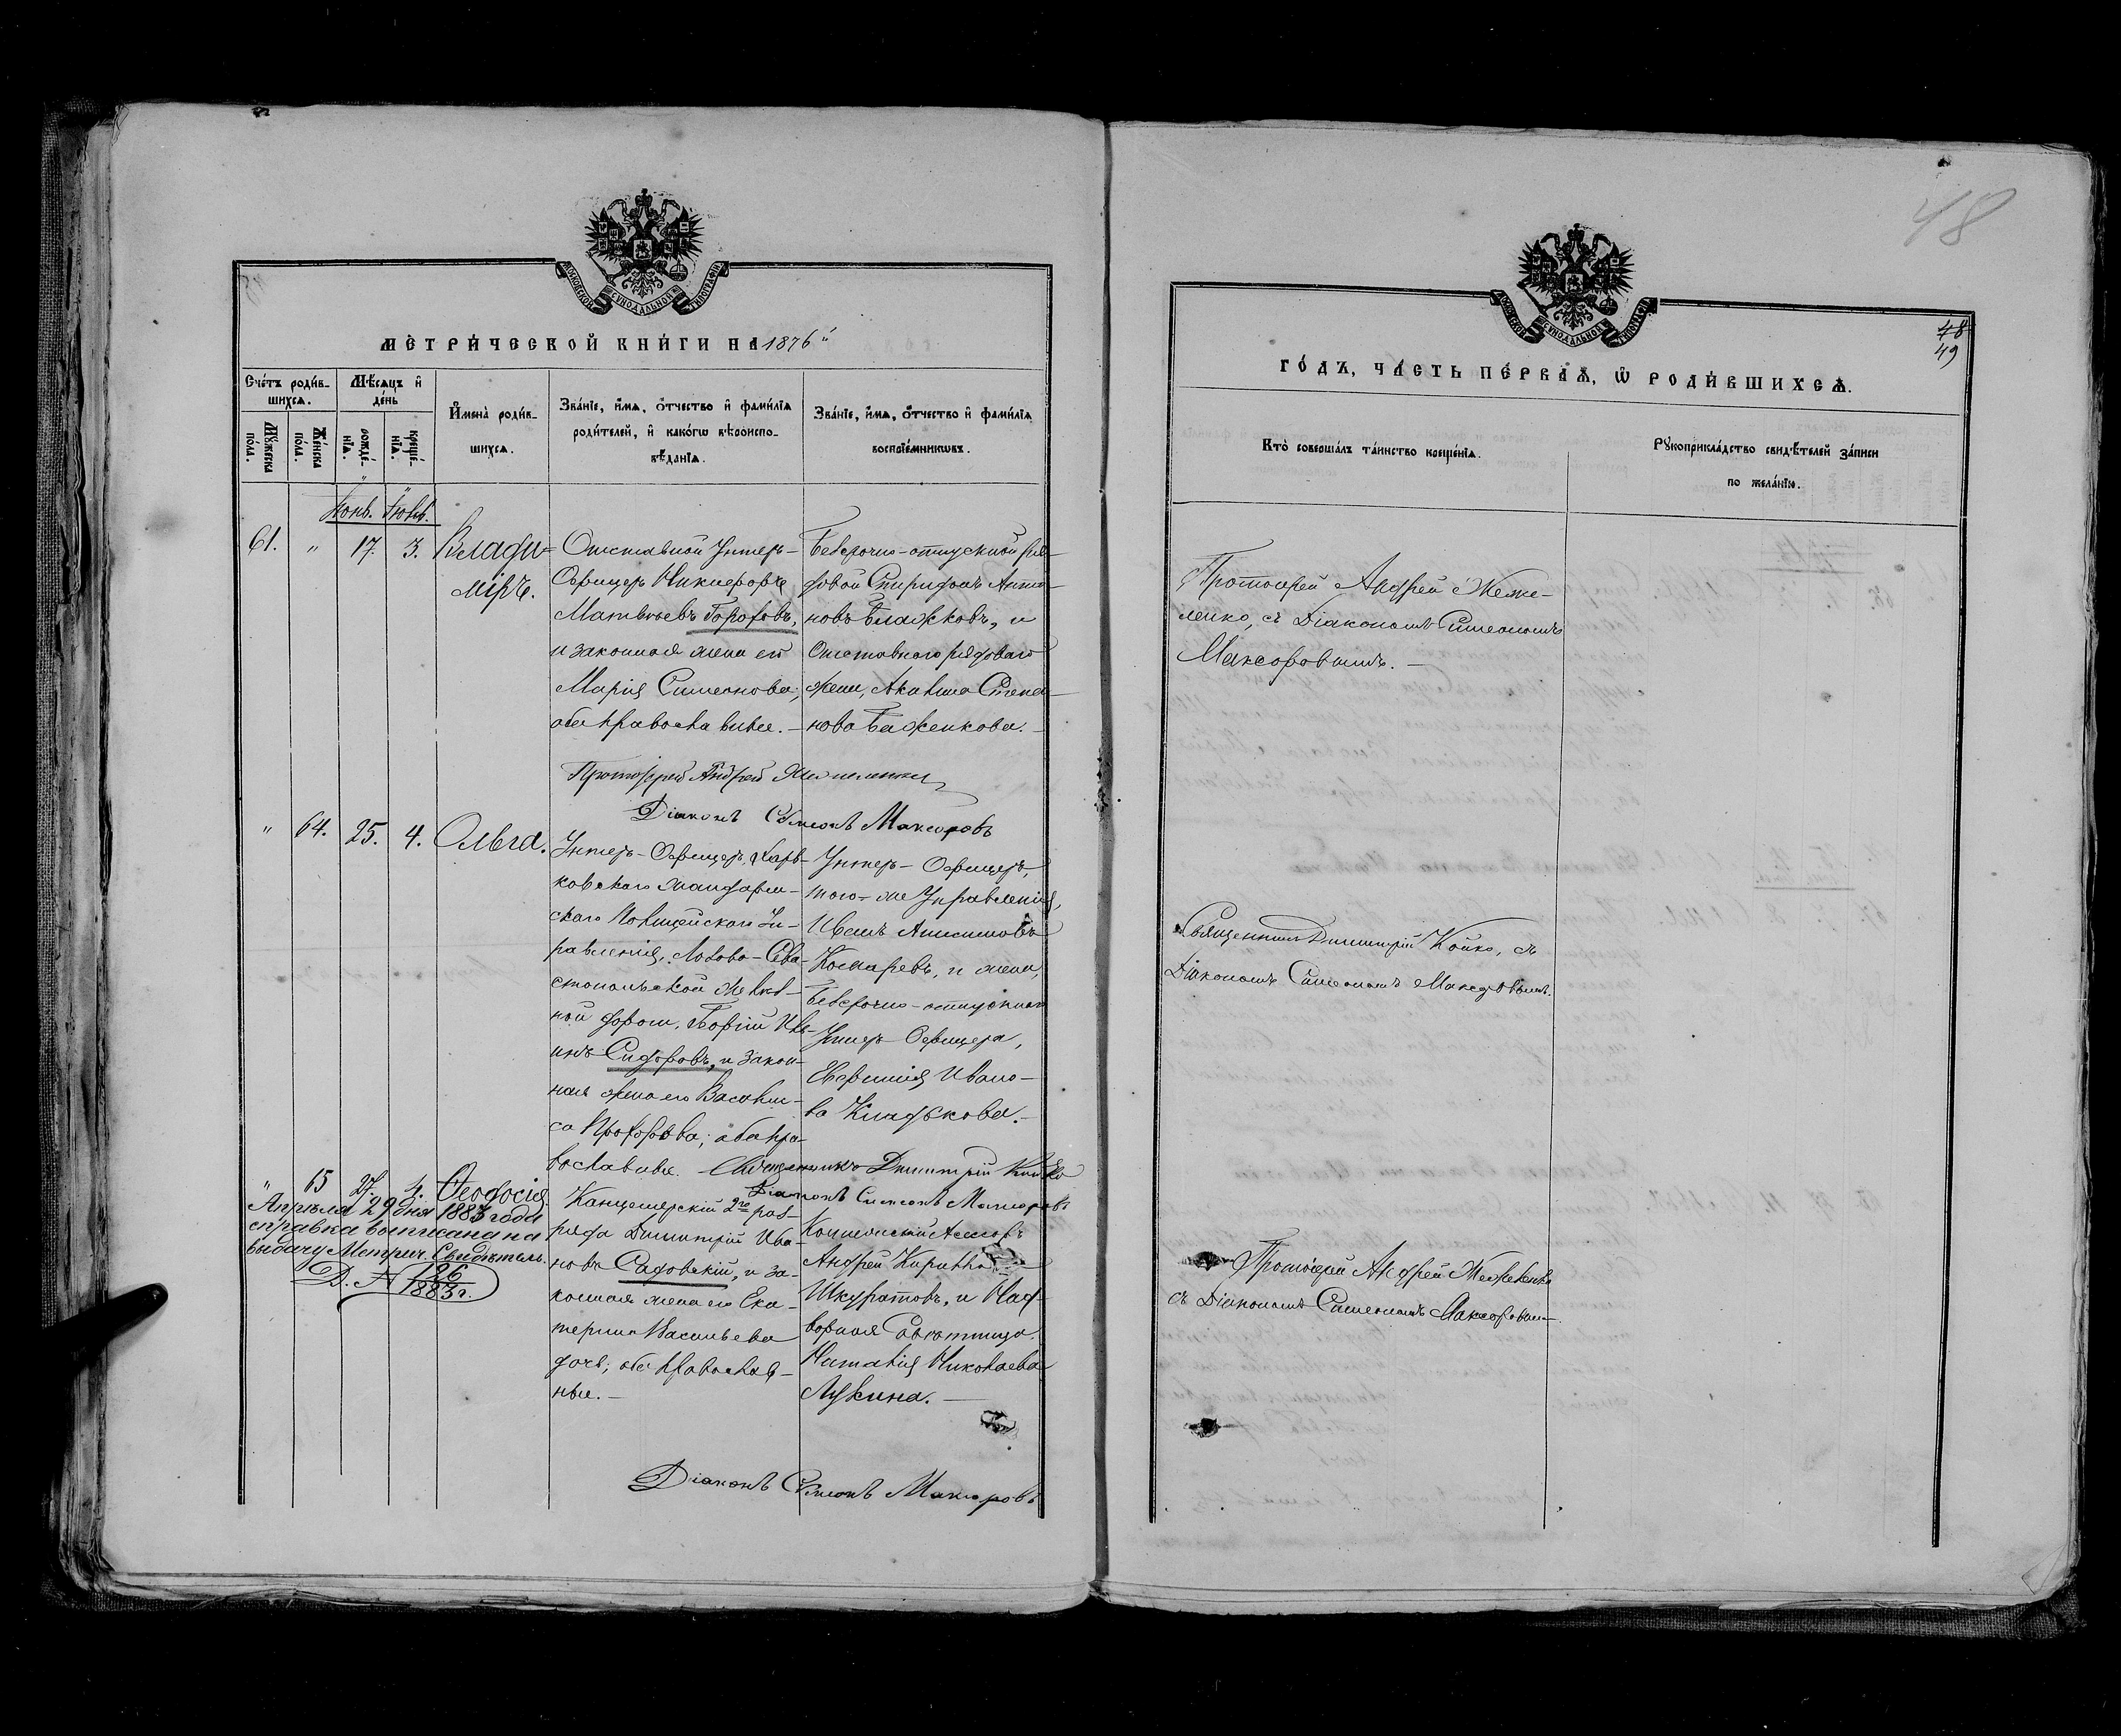 48
МОСКОВСКОЙ СѴНОДАЛЬНОЙ ТИПОГРАФІИ
МЕТРИ́ЧЕСКОЙ КНИ́ГИ НА 1876
Сче́тъ роди́в-
шихсѧ.
Мꙋ́жеска
по́ла.
Же́нска
по́ла.
Мѣ́сѧцъ и҆
де́нь
рожде́-
нїѧ.
креще́-
нїѧ.
И҆мена̀ роди́в-
шихсѧ.
Зва́нїе, и҆́мѧ, ѻ҆́тчество и҆ фами́лїѧ
роди́телей, и҆ како́гѡ вѣроиспо-
вѣ́данїѧ.
Зва́нїе, и҆́мѧ, ѻ҆́тчество и҆ фами́лїѧ
воспрїе́мникѡвъ.
Іюнь. Іюль.
61. " 17. 3. Влади-
міръ.
Отставной Унтеръ-
Офицеръ Никифоръ
Матвѣевъ Гороховъ,
и законная жена его
Марія Симеонова;
оба православные. –
Безсрочно-отпускной ря-
довой Спиридонъ Анто-
новъ Блажковъ, и
Отставного рядоваго
жена, Акилина Степа-
нова Баженкова. –
Протоіерей Андрей
Діаконъ Симеонъ Максоровъ
" 64. 25. 4. Ольга.
Унтеръ-Офицеръ, Харь-
ковскаго Жандарм-
скаго Полицейскаго Уп-
равленія, Лозово-Сева-
стопольской желѣз-
ной дороги, Георгій Ива-
новъ Сидоровъ, и закон-
ная жена его Васили-
са Прохорова; оба пра-
вославные.
Унтеръ-Офицеръ,
того-же Управленія,
Иванъ Анисимовъ
Косаревъ, и жена,
Безсрочно-отпускнаго
Унтеръ Офицера,
Евфимія Ивано-
ва Кладькова. –
Священникъ Димитрій Койко
Діаконъ Симеонъ Максоровъ
" 65 27. 4. Ѳеодосія
Апрѣля 29 дня 1883 года
справка выписана на
выдачу Метрич. Свидѣтель.
Д. № 126
1883 г.
Канцелярскій 2го раз-
ряда Димитрій Ива-
новъ Садовскій, и за-
конная жена его Ека-
терина Васильева
дочь; оба православ-
ные. –
Коллежскій Ассесоръ
Андрей
Шкуратовъ, и Над-
ворная Совѣтница
Наталія Николаева
Лукина. –
Діаконъ Симеонъ Максоровъ
МОСКОВСКОЙ СѴНОДАЛЬНОЙ ТИПОГРАФІИ
48
49
ГО́ДЪ, ЧА́СТЬ ПЕ́РВАѦ, Ѡ҆ РОДИ́ВШИХСѦ.
Кто̀ соверша́лъ та́инство креще́нїѧ.
Рꙋкоприкла́дство свидѣ́телей за́писи
по жела́нїю.
Протоіерей Андрей Жеме-
ленко, съ Діакономъ Симеономъ
Максоровымъ. –
Священникъ Димитрій Койко, съ
Діакономъ Симеономъ Максоровымъ.
Протоіерей Андрей
съ Діакономъ Симеономъ Максоровым